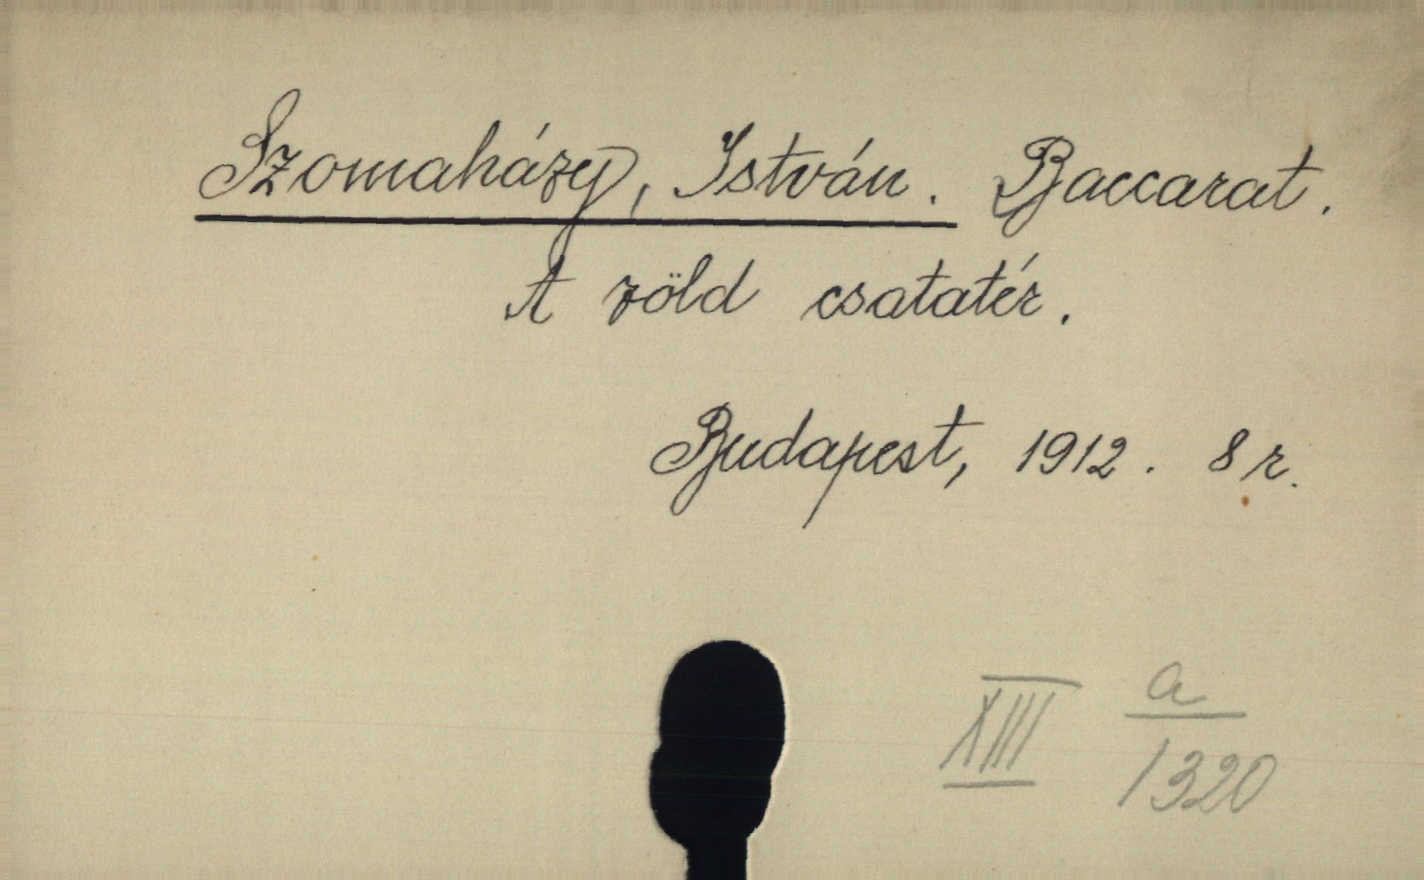 Szomaházy, István. Baccarat.
A zöld csatatér.
Budapest, 1912. 8 r.
XIII a
1320